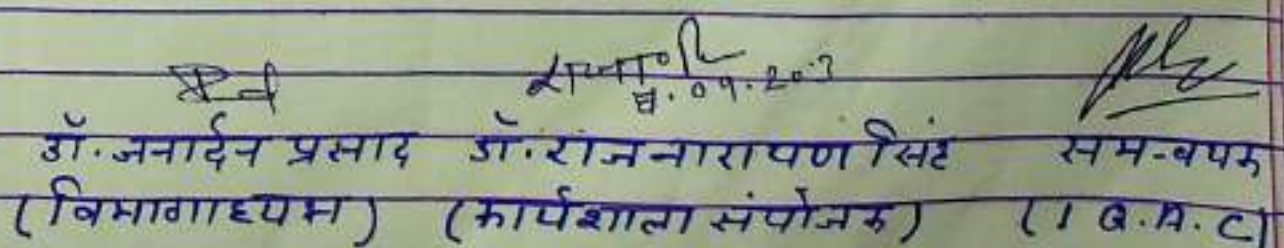 डॉ. जनार्दन प्रसाद डॉ. राजनारायण सिंह समन्वयक
(विभागाध्यक्ष) (कार्यशाला संयोजक) (I Q.A.C)